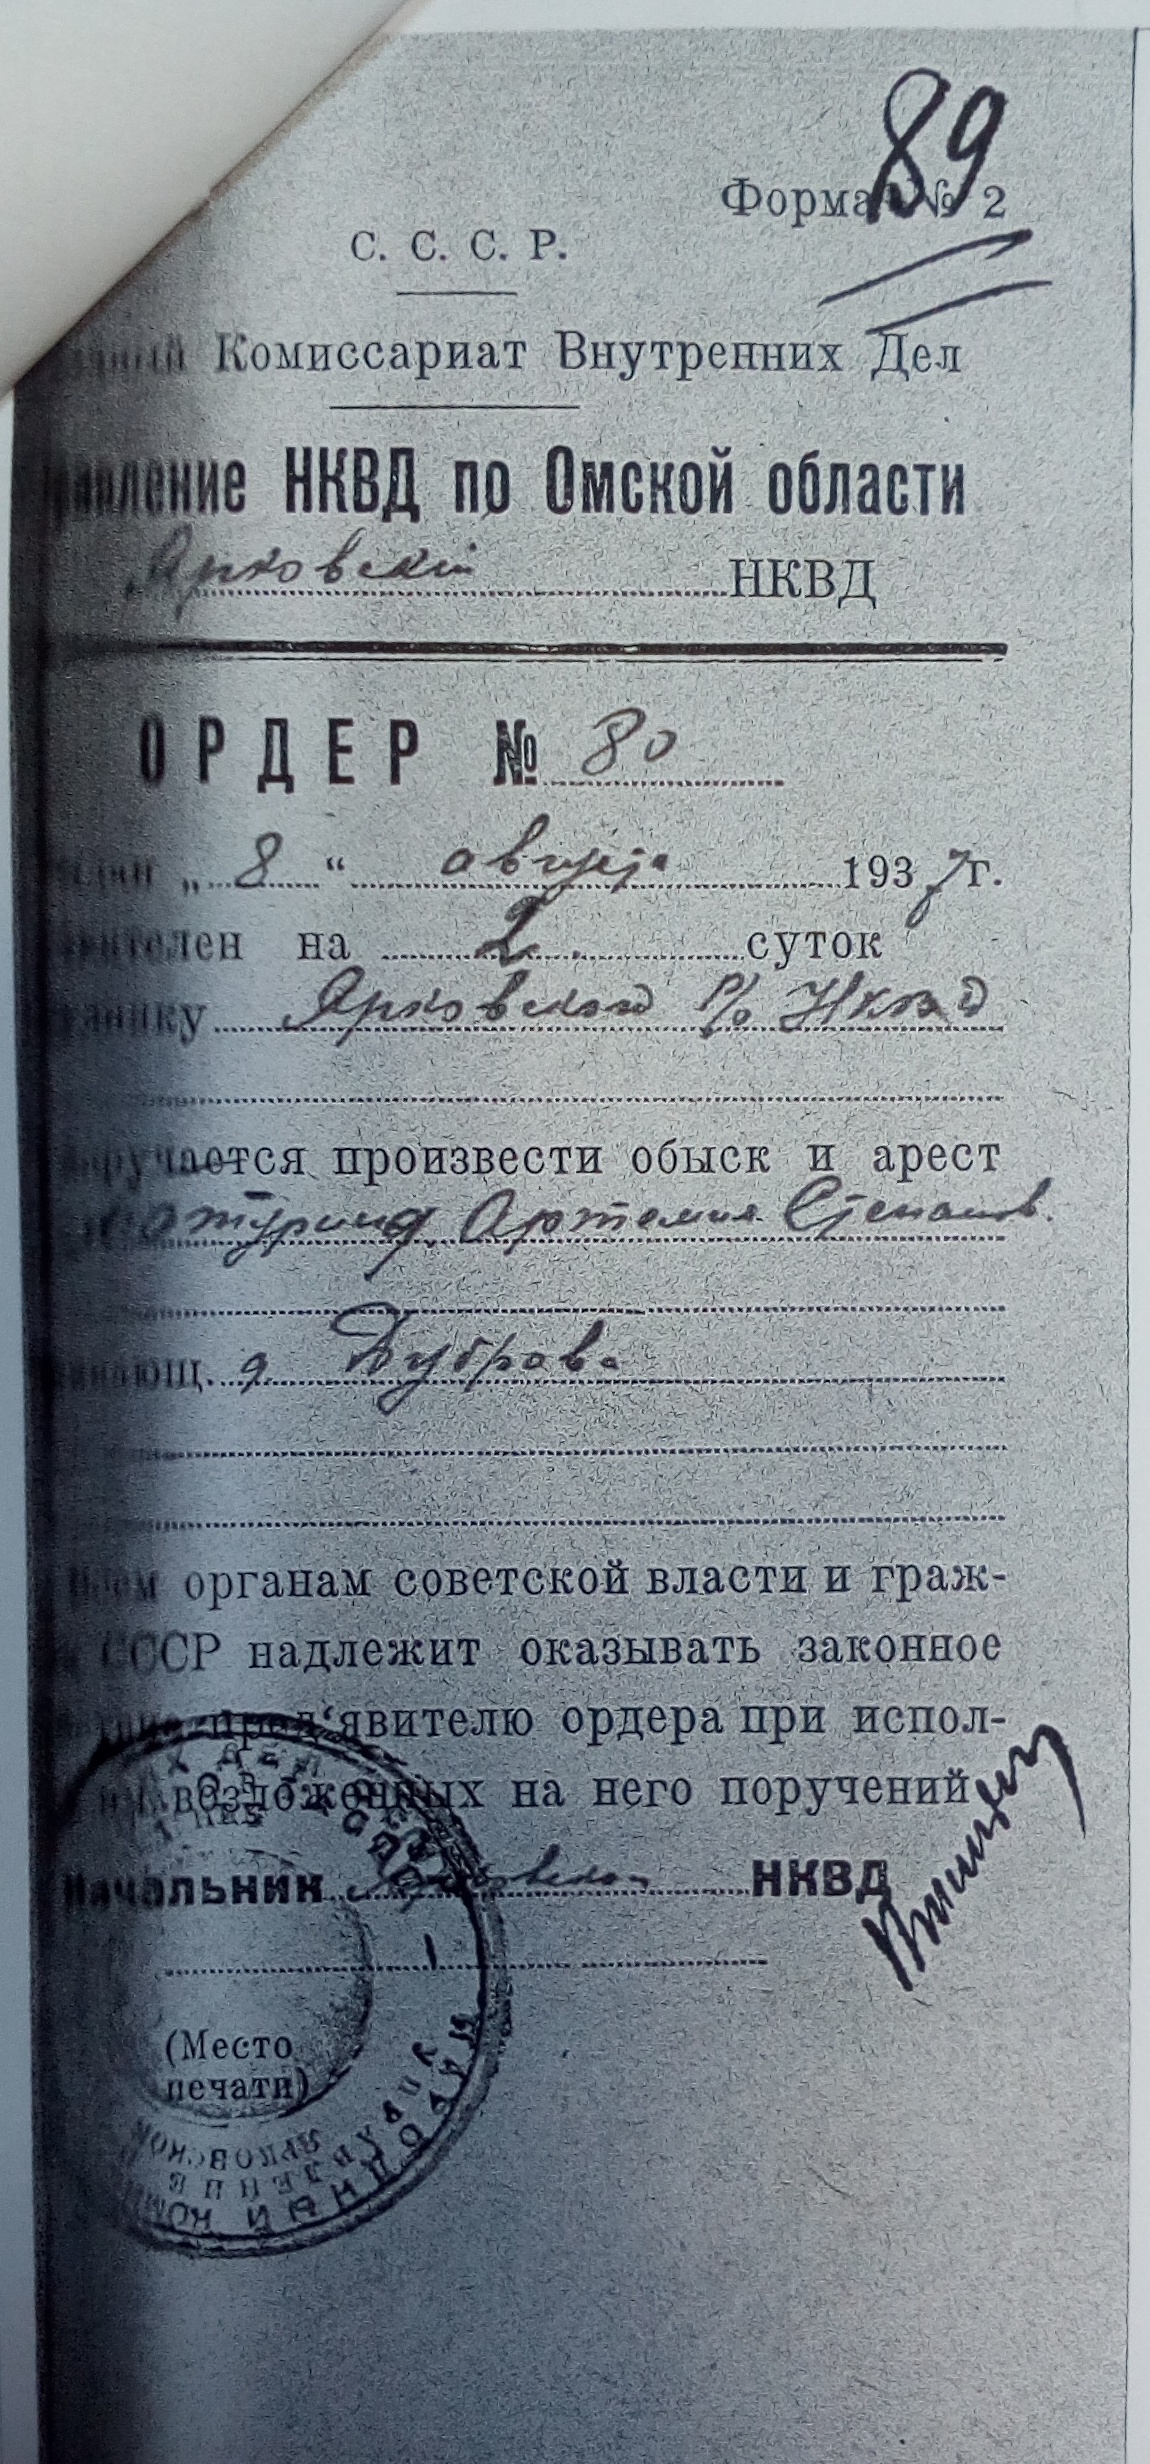 89
Форма № 2
С. С. С. Р.
Комиссариат Внутренних Дел
НКВД по Омской области
Ярковский НКВД
ОРДЕР № 80
„ 8 “ августа 1937 г.
на 2 суток
Ярковского Р/о НКВД
произвести обыск и арест
Артемия Степанов.
д. Дуброва
органам советской власти и граж-
СССР надлежит оказывать законное
пред‘явителю ордера при испол-
возложенных на него поручений
Начальник НКВД
(Место
печати)
НАРОДНЫЙ